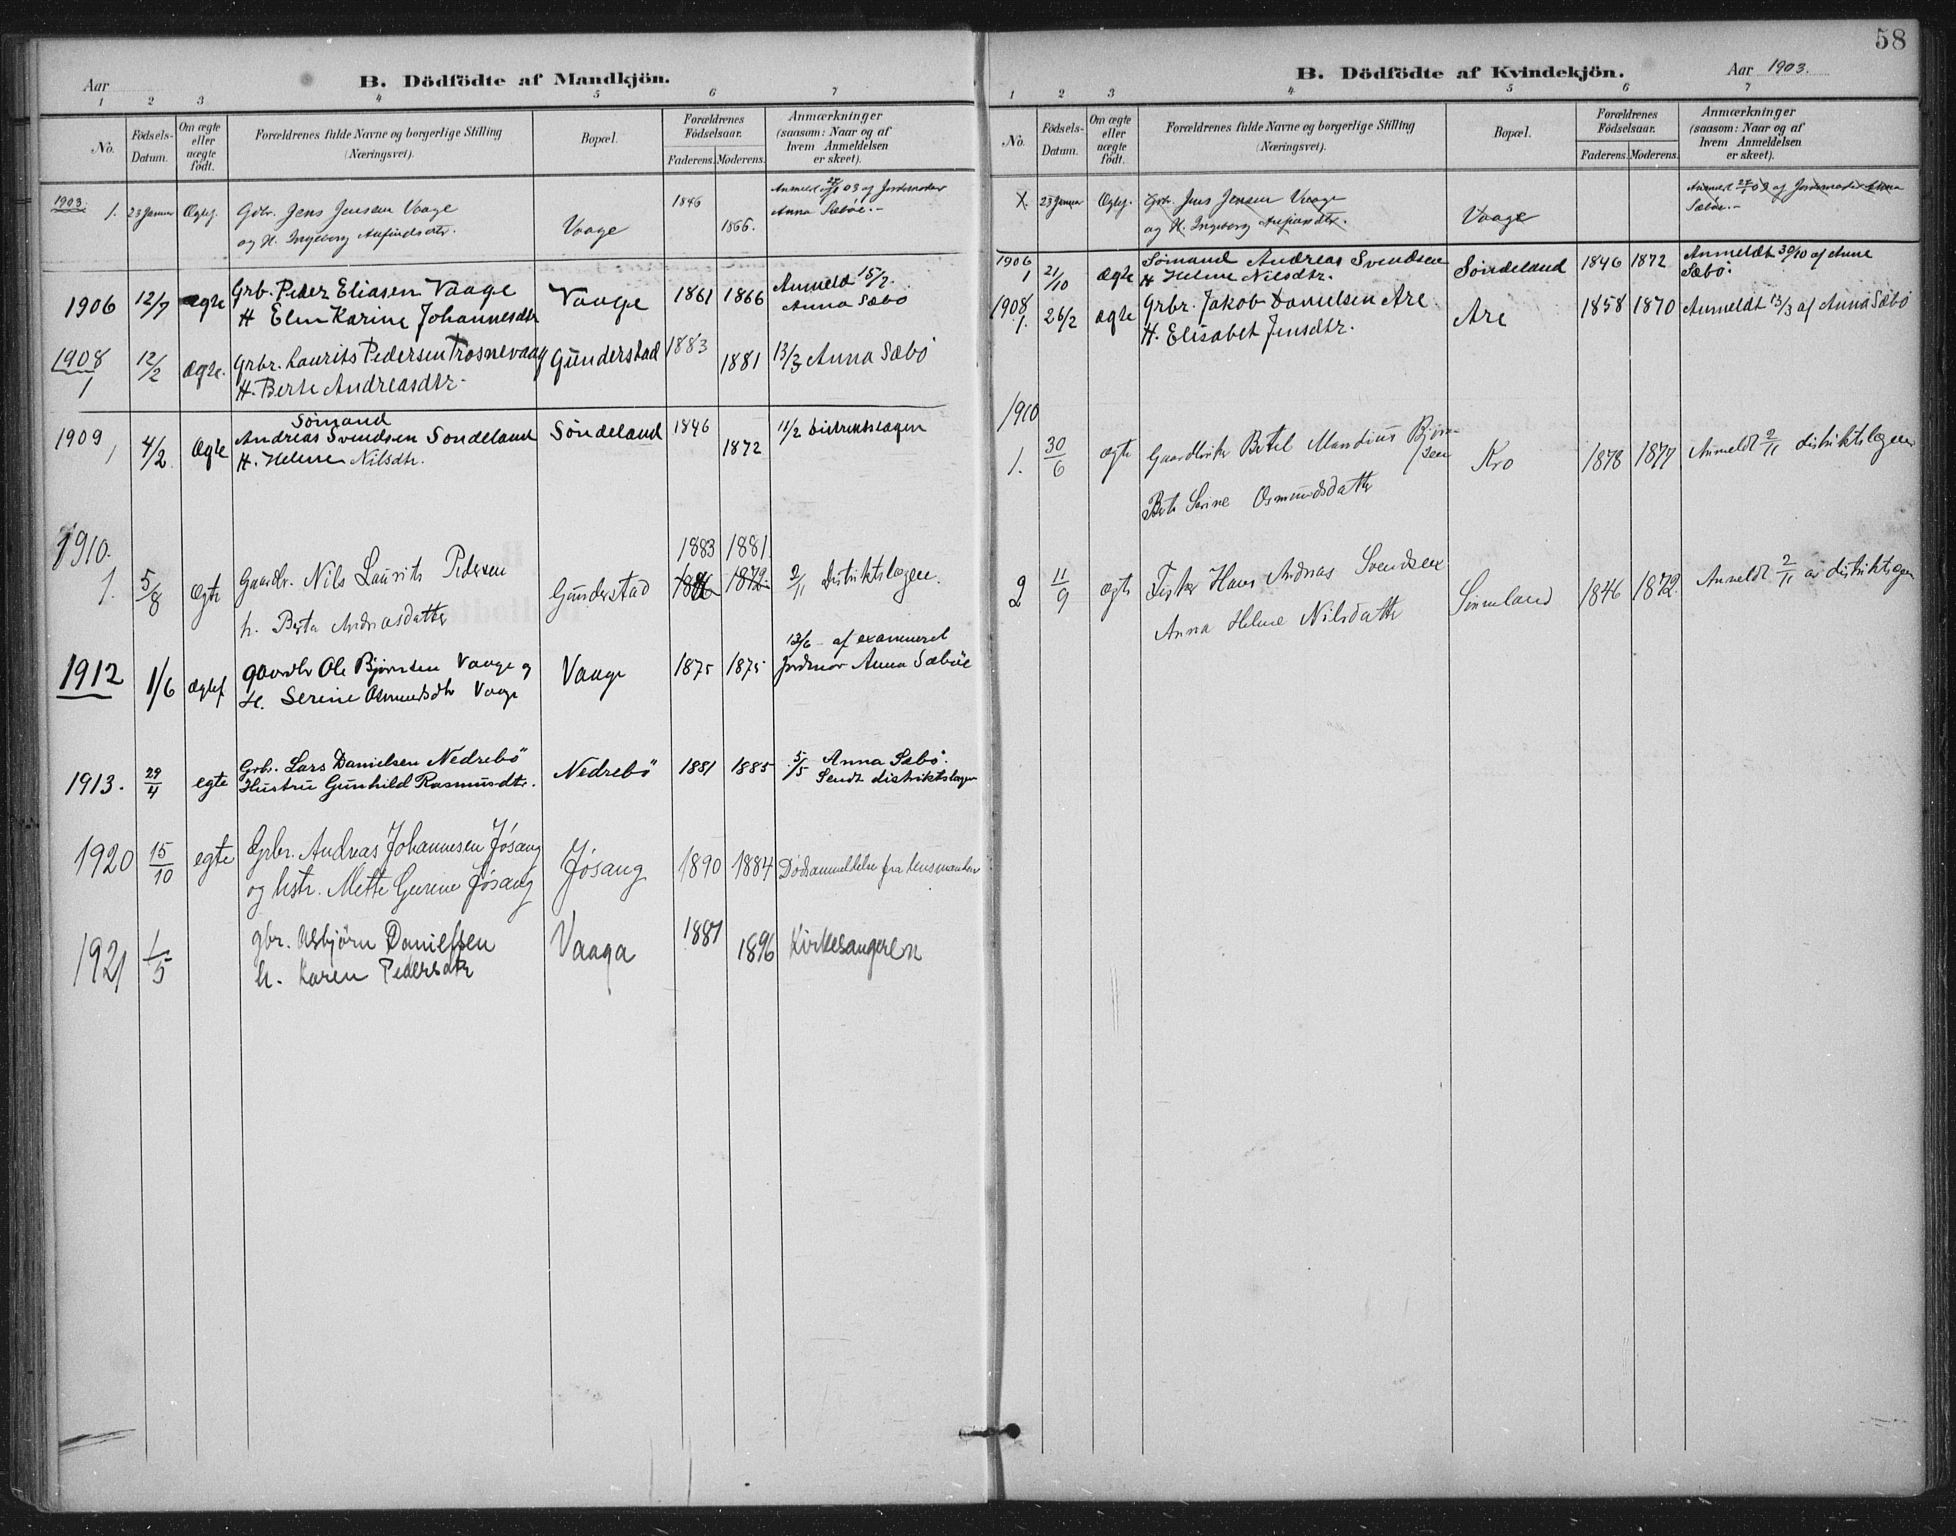 Aar
B. Dödfödte af Mandkjön.
1 2 3 4 5 6 7
No.
Födsels-Datum.
Om ægte eller uægte födt.
Forældrenes fulde Navne og borgerlige Stilling (Næringsvei).
Bopæl.
Forældrenes Födselsaar.
Faderens. Moderens.
Anmærkninger (saasom: Naar og af hvem Anmeldelsen er skeet).
1903. 1. 23 Januar Ægtef. Gbr. Jens Jensen Vaage Vaage 1846 1866. Anmeldt 03 af Jordemoder
og H. Ingeborg Anfindsdtr. Anna Sæbøe.-
1906 12/7 ægte Grb. Peder Eliasen Vaage Vaage 1861 1866 Anmeld 15/7.
H Elen Karine Johannesdtr Anna Sæbø
1908 1 12/2 ægte. Grbr. Laurits Pedersen Trosnevaag Gunderstad 1883 1881 13/3 Anna Sæbø
H. Berte Andreasdtr.
1909 1 4/2 Ægte Sømand
Andreas Svendsen Søndeland Søndeland 1846 1872 11/2 Distriktslægen
H. Helene Nilsdtr.
1910. 1883 1881.
1. 5/8 ægte Gaardbr. Nils Laurits Pedersen Gunderstad 1872 2/11 Distriktslægen.
h. Berta Andreasdatter
1912 1/6 ægtef Gaardbr Ole Bjørnsen Vaage og Vaage 1875 1875 13/6 af examineret
H. Serine Osmundsdtr Vaage Jordmor Anna Sæbøe
1913. 29/4 egte Grbr. Lars Danielsen Nedrebö Nedrebö 1881 1885 5/5 Anna Sæbö.
Hustru Gunhild Rasmusdtr. Sendt distriktslægen
1920 15/10 egte Grbr. Andreas Johannesen Jøsang Jøsang 1890 1884 Dødsanmeldelse fra lensmanden
og hstr. Mette Gurine Jøsang
1921 1/5 gbr. Asbjörn Danielsen Vaaga 1887 1896 Kirkesangeren
h. Karen Pedersdtr
58
B. Dödfödte af Kvindekjön.
Aar 1903.
1 2 3 4 5 6 7
No.
Födsels-Datum.
Om ægte eller uægte födt.
Forældrenes fulde Navne og borgerlige Stilling (Næringsvei).
Bopæl.
Forældrenes Födselsaar.
Faderens. Moderens.
Anmærkninger (saasom: Naar og af hvem Anmeldelsen er skeet).
1. 23 Januar Ægtef. Gbr. Jens Jensen Vaage Vaage Anmeldt 03 af Jordemoder Anna
og H. Ingeborg Anfindsdtr. Sæbøe.-
1906 1 21/10 ægte Sømand Andreas Svendsen Søndeland 1846 1872 Anmeldt 30/10 af Anne
H Helene Nilsdtr. Sæbø.
1908 1. 26/2 ægte Grbr. Jakob Danielsen Are Are 1858 1870 Anmeldt 13/3 af Anna Sæbø
H. Elisabet Jensdtr.
1910
1. 30/6 ægte Gaardbruker Betel Mandius Bjørnsen Kro 1878 1877 Anmeldt 2/11 distriktslægen
Berte Serine Osmundsdatter
2 11/9 ægte Fisker Hans Andreas Svendsen 1846 1872. Anmeldt 2/11 av distriktslægen
Anna Helene Nilsdatter